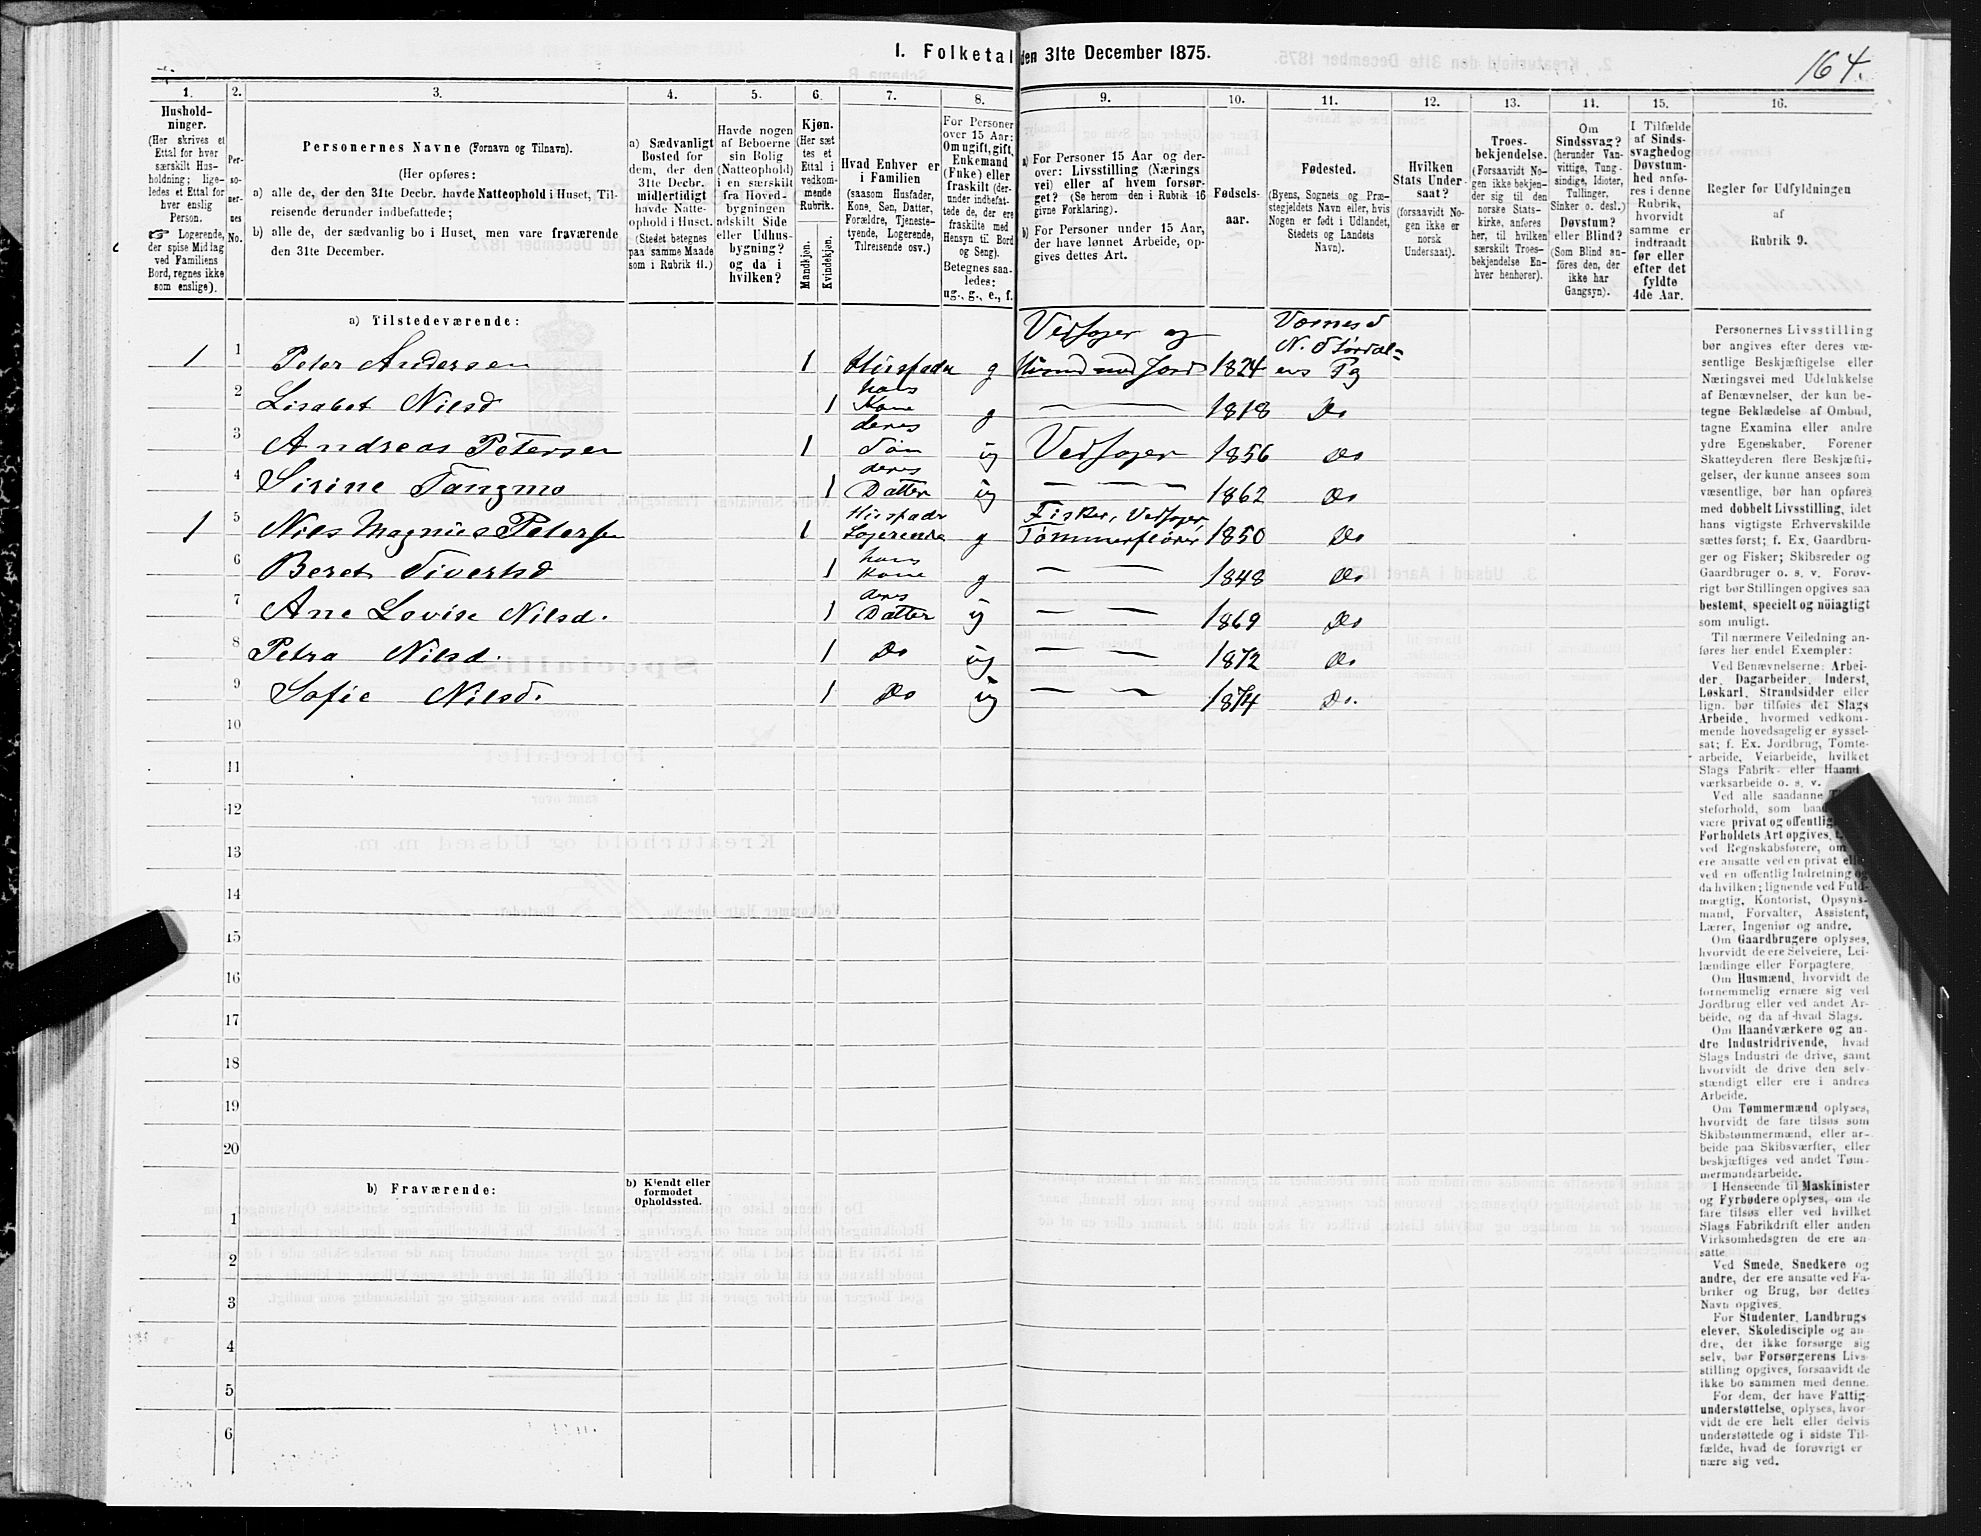 I. Folketal den 31te December 1875.
164.
1.
Hushold-
ninger.
(Her skrives et
Ettal for hver
særskilt Hus-
holdning; lige-
ledes et Ettal for
hver enslig
Person.
☞ Logerende,
der spise Middag
ved Familiens
Bord, regnes ikke
som enslige).
2.
Per-
so-
ner-
nes
No.
3.
Personernes Navne (Fornavn og Tilnavn).
(Her opføres:
a) alle de, der den 31te Decbr. havde Natteophold i Huset, Til-
reisende derunder indbefattede;
b) alle de, der sædvanlig bo i Huset, men vare fraværende
den 31te December.
4.
a) Sædvanligt
Bosted for
dem, der den
31te Decbr.
midlertidigt
havde Natte-
ophold i Huset.
(Stedet betegnes
paa samme Maade
som i Rubrik 11.)
5.
Havde nogen
af Beboerne
sin Bolig
(Natteophold)
i en særskilt
fra Hoved-
bygningen
adskilt Side
eller Udhus-
bygning?
og da i
hvilken?
6.
Kjøn.
(Her sæt
tes et
Ettal i
vedkom-
mende
Rubrik.
Mandkjøn.
Kvindekjøn.
7.
Hvad Enhver er
i Familien
(saasom Husfader,
Kone, Søn, Datter,
Forældre, Tjeneste-
tyende, Logerende,
Tilreisende osv.)
8.
For Personer
over 15 Aar:
Om ugift, gift,
Enkemand
(Enke) eller
fraskilt (der-
under indbefat-
tede de, der ere
fraskilte med
Hensyn til Bord
og Seng).
Betegnes saa-
ledes:
ug., g., e., f.
9.
a) For Personer 15 Aar og der-
over: Livsstilling (Nærings
vei) eller af hvem forsør-
get? (Se herom den i Rubrik 16
givne Forklaring).
b) For Personer under 15 Aar,
der have lønnet Arbeide, op-
gives dettes Art.
10.
Fødsels-
aar.
11.
Fødested.
(Byens, Sognets og Præ-
stegjeldets Navn eller, hvis
Nogen er født i Udlandet,
Stedets og Landets
Navn).
12.
Hvilken
Stats Under-
saat?
(forsaavidt No-
gen ikke er
norsk
Undersaat).
13.
Troes-
bekjendelse.
(Forsaavidt No-
gen ikke bekjen-
der sig til den
norske Stats-
kirke, anføres
her, til hvilken
særskilt Troes-
bekjendelse En-
hver henhører).
14.
Om
Sindssvag?
(herunder Van-
vittige, Tung-
sindige, Idioter,
Tullinger,
Sinker o. desl.)
Døvstum?
eller Blind?
(Som Blind an-
føres den, der
ikke har
Gangsyn).
15.
I Tilfælde
af Sinds-
svaghed og
Døvstum-
hed anfø-
res i denne
Rubrik,
hvorvidt
samme er
indtraadt
før eller
efter det
fyldte
4de Aar.
16.
Regler for Udfyldningen
af
Rubrik 9.
a) Tilstedeværende:
1 1 Peter Andersen 1 Huusfader g Vedsager og Huusmd med Jord 1824 Værnes S N. Størdal= ens Pg
2 Lisabet Nilsd 1 hans Kone g — — 1818 Do
3 Andreas Petersen 1 deres Søn ug Vedsager 1856 Do
4 Sirine Tangmo 1 deres Datter ug — — — 1862 Do
1 5 Nils Magnus Petersen 1 Husfader Logerende g Fisker, Vedsager Tømmerfløder 1850 Do
6 Beret Sivertsd 1 hans Kone g — — 1848 Do
7 Ane Lovise Nilsd. 1 deres Datter ug — — 1869 Do
8 Petra Nilsd. 1 Do ug — — 1872 Do
9 Sofie Nilsd. 1 Do ug — — 1874 Do.
10
11
12
13
14
15
16
17
18
19
20
b) Fraværende:
b) Kjendt eller
formodet
Opholdssted.
1
2
3
4
5
6
Personernes Livsstilling
bør angives efter deres væ-
sentlige Beskjæftigelse eller
Næringsvei med Udelukkelse
af Benævnelser, der kun be-
tegne Beklædelse af Ombud,
tagne Examina eller andre
ydre Egenskaber. Forener
Skatteyderen flere Beskjæfti-
gelser, der kunne ansees som
væsentlige, bør han opføres
med dobbelt Livsstilling, idet
hans vigtigste Erhvervskilde
sættes først; f. Ex. Gaardbru-
ger og Fisker; Skibsreder og
Gaardbruger o. s. v. Forøv-
rigt bør Stillingen opgives saa
bestemt, specielt og nöiagtigt
som muligt.
Til nærmere Veiledning an-
føres her endel Exempler:
Ved Benævnelserne: Arbei-
der, Dagarbeider, Inderst,
Løskarl, Strandsidder eller
lign. bør tilføies det Slags
Arbeide, hvormed vedkom-
mende hovedsagelig er syssel-
sat; f. Ex. Jordbrug, Tomte-
arbeide, Veiarbeide, hvilket
Slags Fabrik- eller Haand
værksarbeide o. s. v.
Ved alle saadanne
steforhold, som
være privat og offentlig
Forholdets Art opgives,
ved Regnskabsførere, om
ere ansatte ved en privat eller
ved en offentlig Indretning og
da hvilken; lignende ved Fuld-
mægtig, Kontorist, Opsyns-
mand, Forvalter, Assistent,
Lærer, Ingeniør og andre.
Om Gaardbrugere oplyses,
hvorvidt de ere Selveiere, Lei-
lændinge eller Forpagtere.
Om Husmænd, hvorvidt de
fornemmelig ernære sig ved
Jordbrug eller ved andet Ar-
beide, og da af hvad Slags.
Om Haandværkere og an-
dre Industridrivende, hvad
Slags Industri de drive, samt
hvorvidt de drive den selv-
stændigt eller ere i andres
Arbeide.
Om Tømmermænd oplyses,
hvorvidt de fare tilsøs som
Skibstømmermænd, eller ar-
beide paa Skibsværfter, eller
beskjæftiges ved andet Tøm-
mermandsarbeide.
I Henseende til Maskinister
og Fyrbødere oplyses, om de
fare tilsøs eller ved hvilket
Slags Fabrikdrift eller anden
Virksomhedsgren de ere an-
satte.
Ved Smede, Snedkere og
andre, der ere ansatte ved Fa-
briker og Brug, bør dettes
Navn opgives.
For Studenter, Landbrugs
elever, Skoledisciple og an-
dre, der ikke forsørge sig
selv, bør Forsørgerens Livs-
stilling opgives, forsaavidt de
ikke bo sammen med denne.
For dem, der have Fattig-
understøttelse, oplyses, hvor-
vidt de ere helt eller delvis
understøttede og i sidste Til-
fælde, hvad de forøvrigt er
nære sig ved.